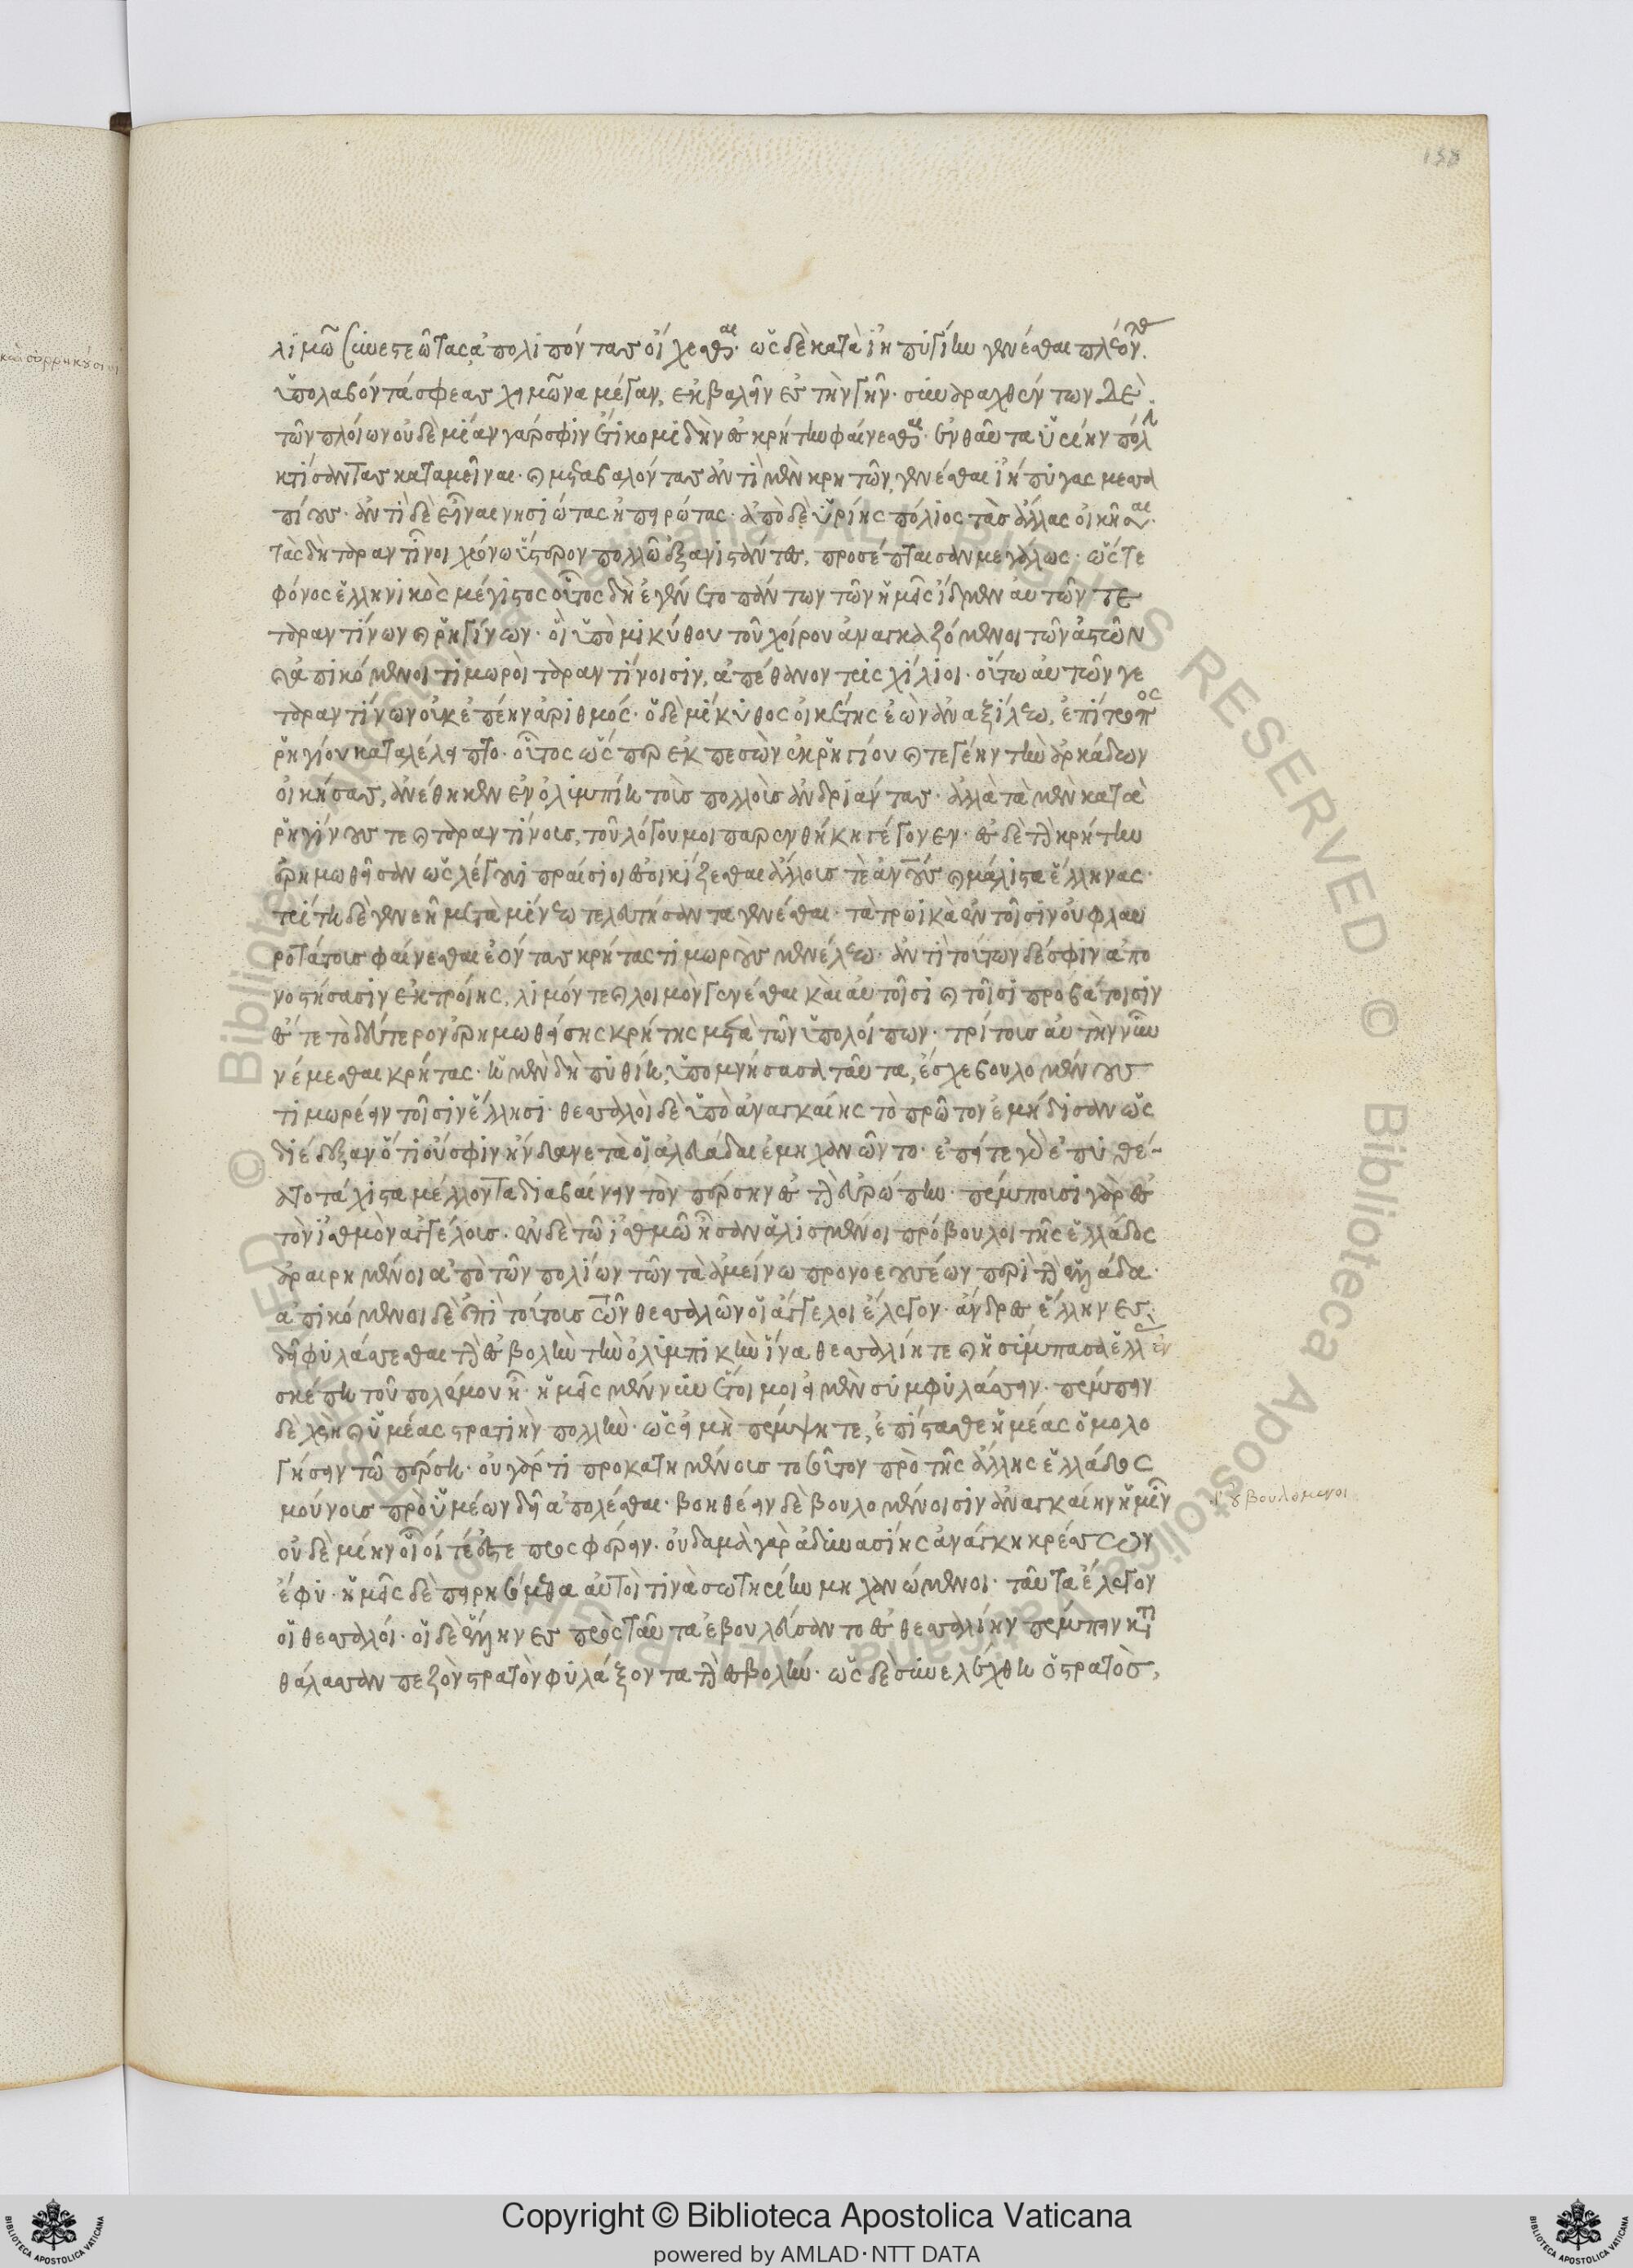 138
λιμῷ συνεστεῶτας ἀπολιπόντας οἴχεσθαι· ὡς δὲ κατὰ ἰηπυγίην γενέσθαι πλέοντας
ὑπολαβόντά σφεας χειμῶνα μέγαν, ἐκβαλεῖν ἐς τὴν γῆν· συναραχθέντων δὲ
τῶν πλοίων οὐδεμίαν γάρ σφιν ἔτι κομιδὴν ἐς κρήτην φαίνεσθαι· ἐνθαῦτα ὑρίην πόλιν
κτίσαντας καταμεῖναι· καὶ μεταβαλόντας ἀντὶ μὲν κρητῶν, γενέσθαι ἰήπυγας μεσσα
πίους· ἀντὶ δὲ εἶναι νησιώτας ἠπειρώτας· ἀπὸ δὲ ὑρίης πόλιος τὰς ἄλλας οἰκῆσαι·
τὰς δὴ ταραντῖνοι χρόνῳ ὕστερον πολλῷ ἐξανιστάντες, προσέπταισαν μεγάλως· ὥστε
φόνος ἑλληνικὸς μέγιστος οὗτος δὴ ἐγένετο πάντων τῶν ἡμεῖς ἴδμεν αὐτῶν τε
ταραντίνων καὶ ῥηγίνων· οἳ ὑπὸ μικύθου τοῦ χοίρου ἀναγκαζόμενοι τῶν ἀστῶν
καὶ ἀπικόμενοι τιμωροὶ ταραντίνοισιν, ἀπέθανον τρισχίλιοι· οὕτω αὐτῶν γε
ταραντίνων οὐκ ἐπέην ἀριθμός· ὁ δὲ μίκυθος οἰκέτης ἐὼν ἀναξίλεω, ἐπίτροπος
ῥηγίου καταλέλειπτο· οὗτος ὅσπερ ἐκπεσὼν ἐκ ῥηγίου καὶ τεγέην τὴν ἀρκάδων
οἰκήσας, ἀνέθηκεν ἐν ὀλυμπίῃ τοὺς πολλοὺς ἀνδριάντας· ἀλλὰ τὰ μὲν κατὰ
ῥηγίνους τε καὶ ταραντίνους, τοῦ λόγου μοι παρενθήκη γέγονεν· ἐς δὲ τὴν κρήτην
ἐρημωθεῖσαν ὡς λέγουσι πραίσιοι ἐσοικίζεσθαι ἄλλους τε ἀνθρώπους καὶ μάλιστα ἕλληνας·
τρίτῃ δὲ γενεῇ μετὰ μίνεω τελευτήσαντα γενέσθαι τὰ τρωικὰ ἐν τοῖσιν οὐ φλαυ
ροτάτους φαίνεσθαι ἐόντας κρῆτας τιμωροὺς μενέλεω· ἀντὶ τούτων δέ σφιν ἀπο
νοστήσασιν ἐκ τροίης, λιμόν τε καὶ λοιμὸν γενέσθαι καὶ αὐτοῖσι καὶ τοῖσι προβάτοισιν
ἔς τε τὸ δεύτερον ἐρημωθείσης κρήτης μετὰ τῶν ὑπολοίπων· τρίτους αὐτὴν νῦν
νέμεσθαι κρῆτας· ἡ μὲν δὴ πυθίη, ὑπομνήσασα ταῦτα, ἔσχε βουλομένους
τιμωρέειν τοῖσιν ἕλλησι· θεσσαλοὶ δὲ ὑπὸ ἀναγκαίης τὸ πρῶτον ἐμήδισαν ὡς
διέδεξαν ὅτι οὔ σφιν ἥνδανε τὰ οἱ ἀλευάδαι ἐμηχανῶντο· ἐπείτε γὰρ ἐπυθέ-
ατο τάχιστα μέλλοντα διαβαίνειν τὸν πέρσην ἐς τὴν εὐρώπην· πέμπουσι γὰρ ἐς
τὸν ἰσθμὸν ἀγγέλους· ἐν δὲ τῷ ἰσθμῷ ἦσαν ἁλισμένοι πρόβουλοι τῆς ἑλλάδος
ἀραιρημένοι ἀπὸ τῶν πολίων τῶν τὰ ἀμείνω προνοεουσέων περὶ τὴν ἑλλάδα·
ἀπικόμενοι δὲ ἐπὶ τούτους τῶν θεσσαλῶν οἱ ἄγγελοι ἔλεγον· ἄνδρες ἕλληνες
δεῖ φυλάσσεσθαι τὴν ἐσβολὴν τὴν ὀλυμπικὴν ἵνα θεσσαλίη τε καὶ ἡ σύμπασα ἑλλὰς ἐν
σκέπῃ τοῦ πολέμου ᾖ· ἡμεῖς μέν νυν ἕτοιμοι εἰμὲν συμφυλάσσειν· πέμπειν
δὲ χρὴ καὶ ὑμέας στρατιὴν πολλήν· ὡς εἰ μὴ πέμψητε, ἐπίστασθε ἡμέας ὁμολο
γήσειν τῷ πέρσῃ· οὐ γάρ τι προκατημένους τοσοῦτον πρὸ τῆς ἄλλης ἑλλάδος
μούνους πρὸ ὑμέων δεῖ ἀπολέσθαι· βοηθέειν δὲ βουλομένοισιν ἀναγκαίην ἡμῖν
οὐδεμίην οἷοί τέ ἐστε προσφέρειν· οὐδαμὰ γὰρ ἀδυνασίης ἀνάγκη κρέσσων
ἔφυ· ἡμεῖς δὲ πειρησόμεθα αὐτοί τινα σωτηρίην μηχανώμενοι· ταῦτα ἔλεγον
οἱ θεσσαλοί· οἱ δὲ ἕλληνες πρὸς ταῦτα ἐβουλεύσαντο ἐς θεσσαλίην πέμπειν κατὰ
θάλασσαν πεζὸν στρατὸν φυλάξοντα τὴν ἐσβολήν· ὡς δὲ συνελέχθη ὁ στρατὸς,
οὐ βουλόμενοι
Copyright © Biblioteca Apostolica Vaticana
powered by AMLAD·NTT DATA